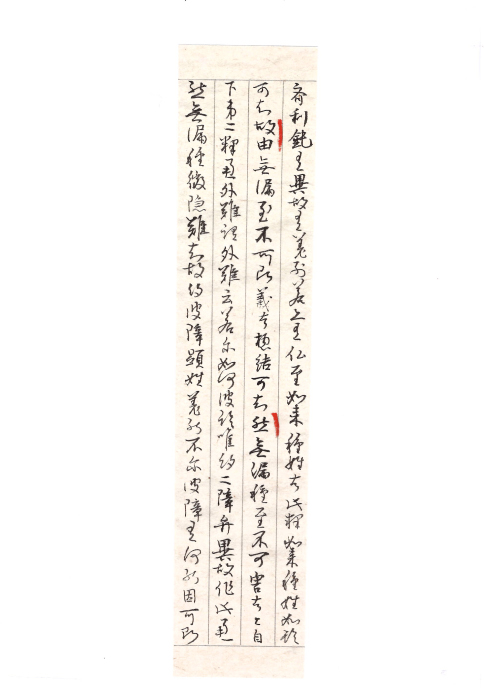 齊利鈍有異故有差別若亦有仏至如来種姓者此釋如来種姓如論
可知故由無漏至不可断義者 惣結可知然無漏種至不可害者々自
下第二釋通外難謂外難云若尓如何彼論唯約二障弁異故作此通
然無漏種微隱難知故約彼障顕姓差別不尓彼障有何別因可断